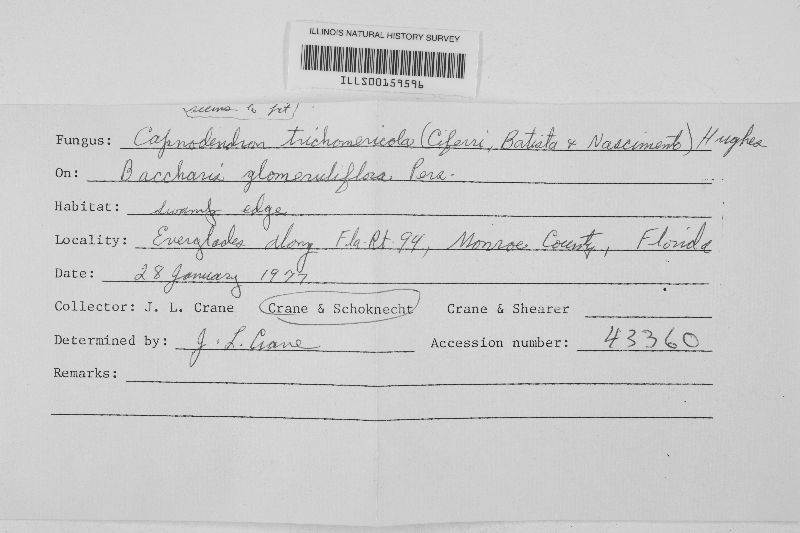 ILLINOIS NATURAL HISTORY SURVEY
ILLS00159596
seems to fit!
Fungus: Capnodendron trichomericola (Ciferri, Batista & Nascimento) Hughes
On: Baccharis glomeruliflora Pers.
Habitat: swamp edge
Locality: Everglades along Fla. Rt. 94, Monroe County, Florida
Date: 28 January 1977
Collector: J. L. Crane Crane & Schoknecht Crane & Shearer
Determined by: J. L. Crane Accession number: 43360
Remarks: